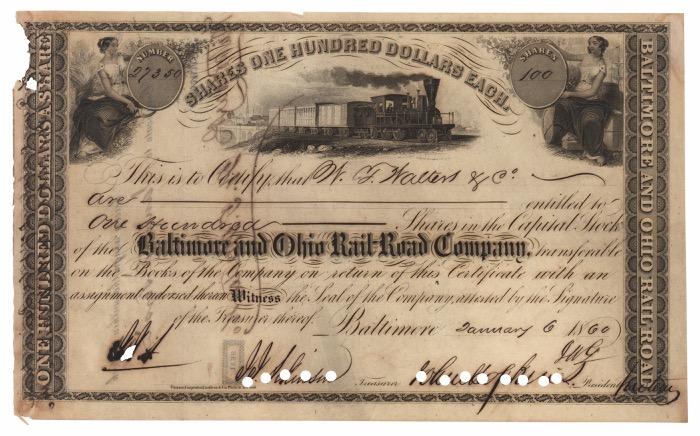 NUMBER
27350
SHARES ONE HUNDRED DOLLARS EACH.
SHARES
100
ONE HUNDRED DOLLARS A SHARE
BALTIMORE AND OHIO RAIL-ROAD
This is to Certify, that W. T. Walters & Co.
are entitled to
One Hundred Shares in the Capital Stock
of the Baltimore and Ohio Rail-Road Company, transferable
on the Books of the Company on return of this Certificate with an
assignment endorsed thereon Witness the Seal of the Company, attested by the Signature
of the Treasurer thereof. Baltimore January 6 1860
Treasurer
President